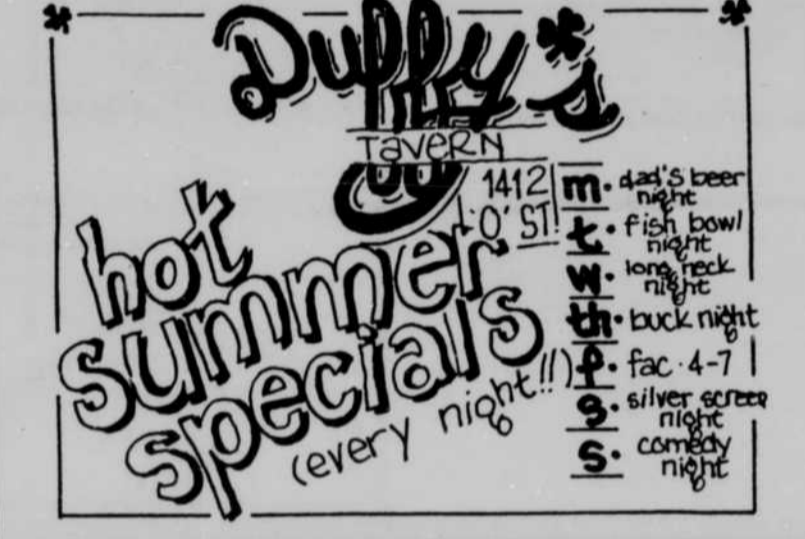 Duffy's
TAVERN
1412
'O' ST!
hot
summer
specials
(every night!!)
m. dad's beer
night
t. fish bowl
night
w. long neck
night
th. buck night
f. fac. 4-7
s. silver screen
night
s. comedy
night